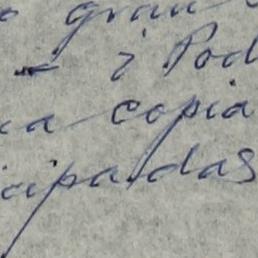 o gran
¿ Pod
na copia
cipadas